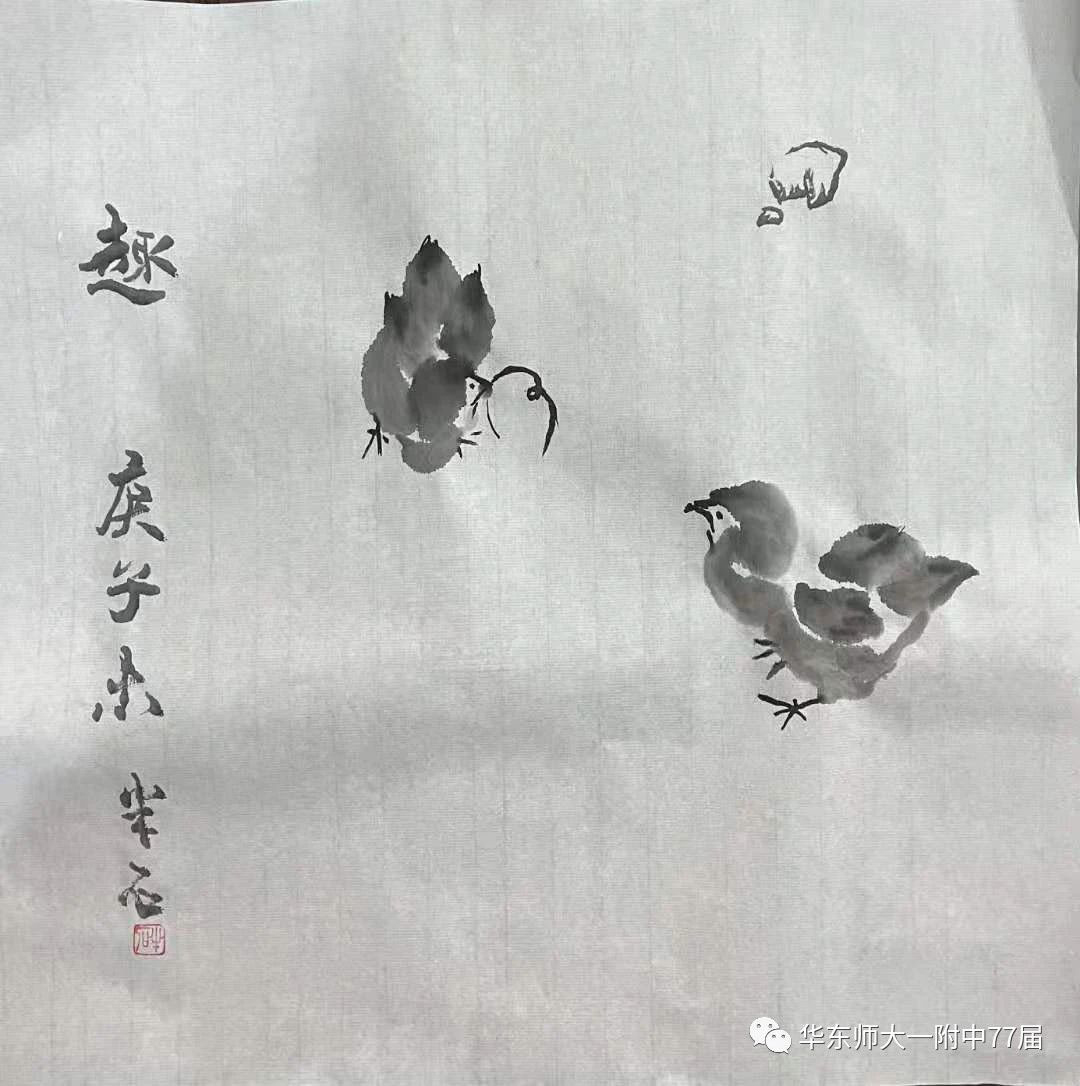 趣
庚子末
半石
半石
华东师大一附中77届